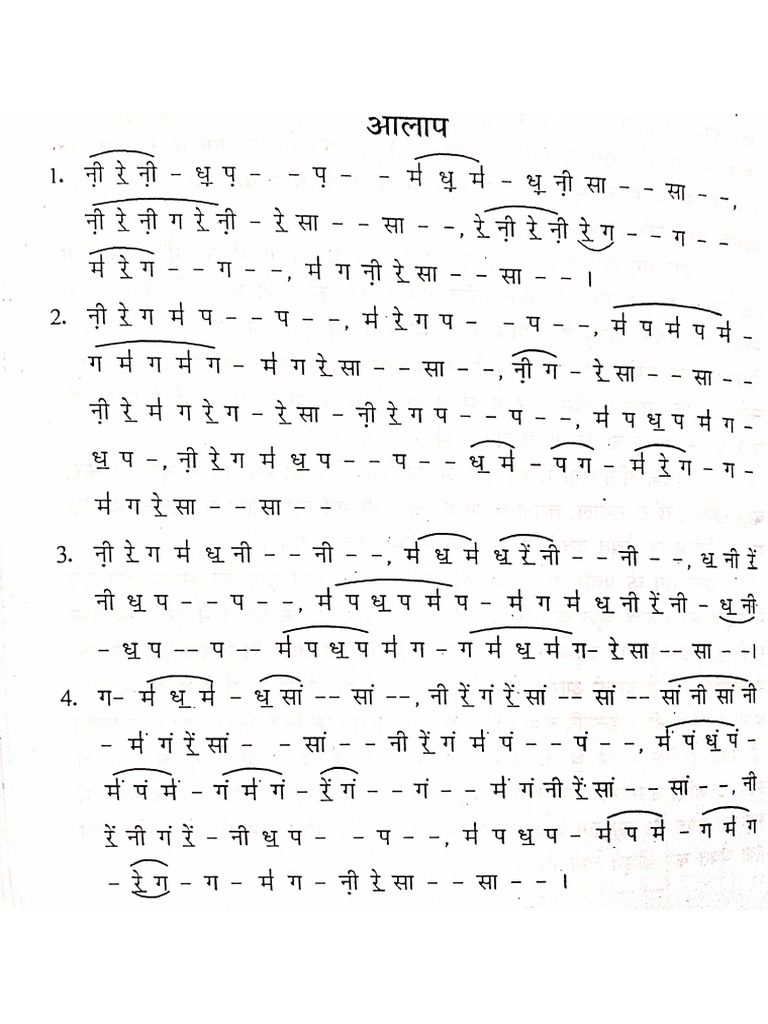 आलाप
1. ऩी रे॒ ऩी – ध़॒ प़ – – प़ – – म़॑ ध़॒ म़॑ – ध़॒ ऩी सा – – सा – –,
ऩी रे॒ ऩी ग रे॒ ऩी – रे॒ सा – – सा – –, रे॒ ऩी रे॒ ऩी रे॒ ग – – ग – –
म॑ रे॒ ग – – ग – –, म॑ ग ऩी रे॒ सा – – सा – – ।
2. ऩी रे॒ ग म॑ प – – प – –, म॑ रे॒ ग प – – प – –, म॑ प म॑ प म॑ –
ग म॑ ग म॑ ग – म॑ ग रे॒ सा – – सा – –, ऩी ग – रे॒ सा – – सा – –
ऩी रे॒ म॑ ग रे॒ ग – रे॒ सा – ऩी रे॒ ग प – – प – –, म॑ प ध॒ प म॑ ग –
ध॒ प –, ऩी रे॒ ग म॑ ध॒ प – – प – – ध॒ म॑ – प ग – म॑ रे॒ ग – ग –
म॑ ग रे॒ सा – – सा –
3. ऩी रे॒ ग म॑ ध॒ नी – – नी – –, म॑ ध॒ म॑ ध॒ रे॒ं नी – – नी – –, ध॒ नी रे॒ं
नी ध॒ प – – प – –, म॑ प ध॒ प म॑ प – म॑ ग म॑ ध॒ नी रे॒ं नी – ध॒ नी
– ध॒ प – – प – – म॑ प ध॒ प म॑ ग – ग म॑ ध॒ म॑ ग – रे॒ सा – – सा – –।
4. ग – म॑ ध॒ म॑ – ध॒ सां – – सां – –, नी रे॒ं गं रे॒ं सां – – सां – – सां नी सां नी
– म॑ं गं रे॒ं सां – – सां – – नी रे॒ं गं म॑ं पं – – पं – –, म॑ं पं ध॒ं पं –
म॑ं पं म॑ं – गं म॑ं गं – रे॒ं गं – – गं – – म॑ं गं नी रे॒ं सां – – सां – –, नी
रे॒ं नी गं रे॒ं – नी ध॒ प – – प – –, म॑ प ध॒ प – म॑ प म॑ – ग म॑ ग
– रे॒ ग – ग – म॑ ग – ऩी रे॒ सा – – सा – – ।